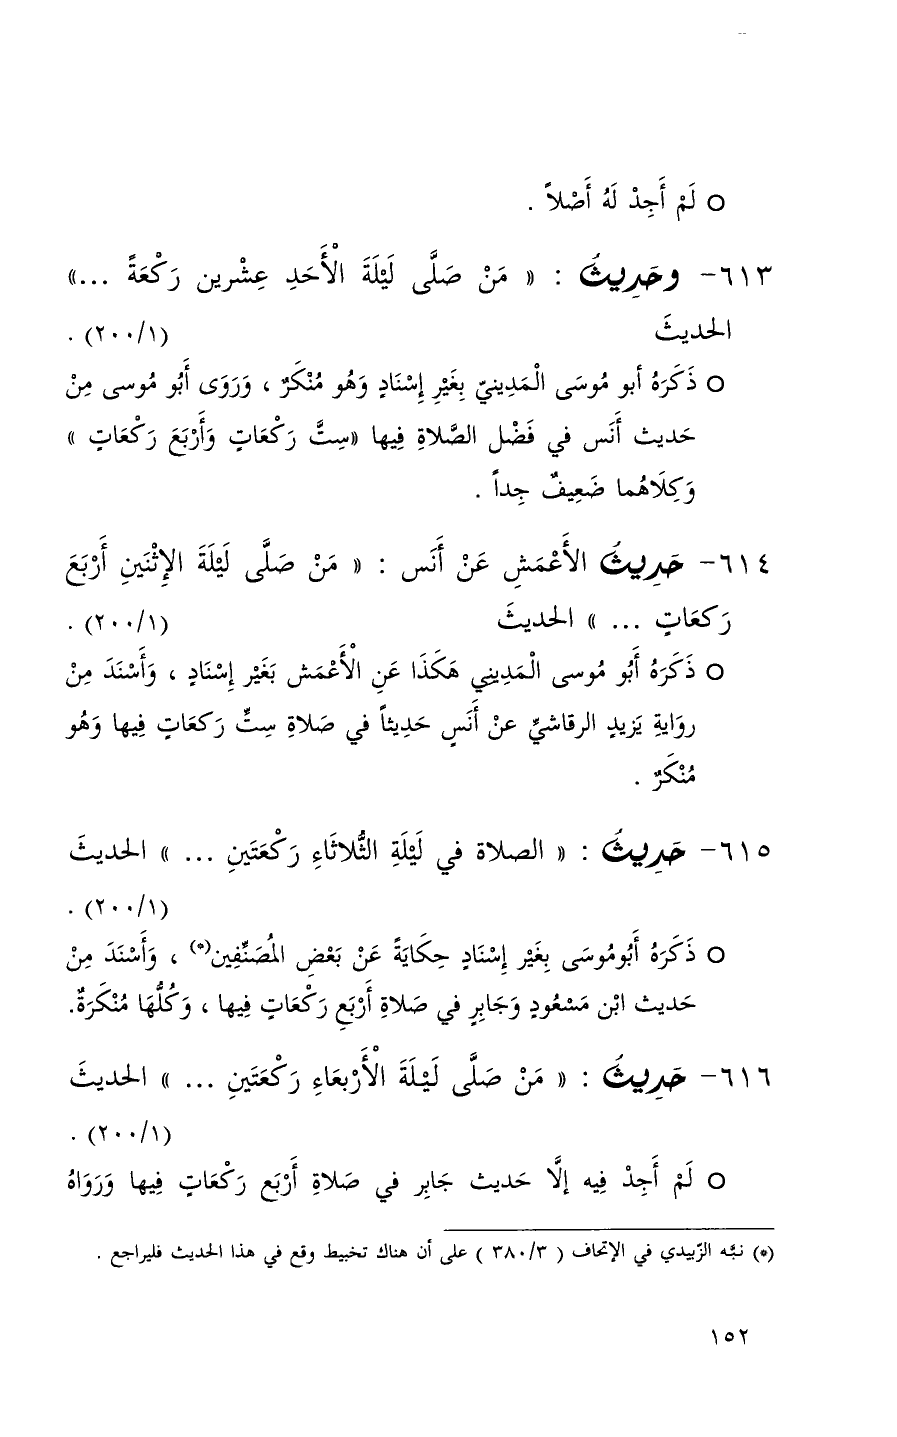 ○ لَمْ أَجِدْ لَهُ أَصْلاً .
٦١٣- وحَدِيثُ : « مَنْ صَلَّى لَيْلَةَ الْأَحَدِ عِشْرين رَكْعَةً ...»
الحديثَ (٢٠٠/١) .
○ ذَكَرَهُ أبو مُوسَى الْمَدِينيّ بِغَيْرِ إِسْنَادٍ وَهُو مُنْكَرٌ ، وَرَوَى أَبُو مُوسى مِنْ
حَديث أَنَس في فَضْل الصَّلاةِ فِيها «سِتَّ رَكْعَاتٍ وَأَرْبَعَ رَكْعَاتٍ »
وَكِلَاهُما ضَعِيفٌ جِداً .
٦١٤- حَدِيثُ الأَعْمَشِ عَنْ أَنَس : « مَنْ صَلَّى لَيْلَةَ الإِثْنَينِ أَرْبَعَ
رَكعَاتٍ ... » الحديثَ (٢٠٠/١) .
○ ذَكَرَهُ أَبُو مُوسى الْمَدِيني هَكَذَا عَنِ الْأَعْمَش بَغَيْر إِسْنَادٍ ، وَأَسْنَدَ مِنْ
روَايةِ يَزيدٍ الرقاشيِّ عنْ أَنَسٍ حَدِيثاً في صَلاةِ سِتٍّ رَكعَاتٍ فِيها وَهُو
مُنْكَرٌ .
٦١٥- حَدِيثُ : « الصلاة في لَيْلَةِ الثُّلاثَاءِ رَكْعَتَينِ ... » الحديثَ
(٢٠٠/١) .
○ ذَكَرَهُ أَبُومُوسَى بِغَيْر إِسْنَادٍ حِكَايَةً عَنْ بَعْضِ المُصَنِّفِين(*) ، وَأَسْنَدَ مِنْ
حَديث ابْن مَسْعُودٍ وَجَابِرٍ في صَلاةِ أَرْبَع رَكْعَاتٍ فيها ، وَكُلُّهَا مُنْكَرَةٌ.
٦١٦- حَدِيثُ : « مَنْ صَلَّى لَيْلَةَ الْأَرْبعَاءِ رَكْعَتَينِ ... » الحديثَ
(٢٠٠/١) .
○ لَمْ أَجِدْ فِيه إلَّا حَديث جَابِر في صَلاةِ أَرْبَع رَكْعَاتٍ فِيها وَرَوَاهُ
(*) نبَّه الزَّبيدي في الإتحاف ( ٣٨٠/٣ ) على أن هناك تخبيط وقع في هذا الحديث فليراجع .
١٥٢